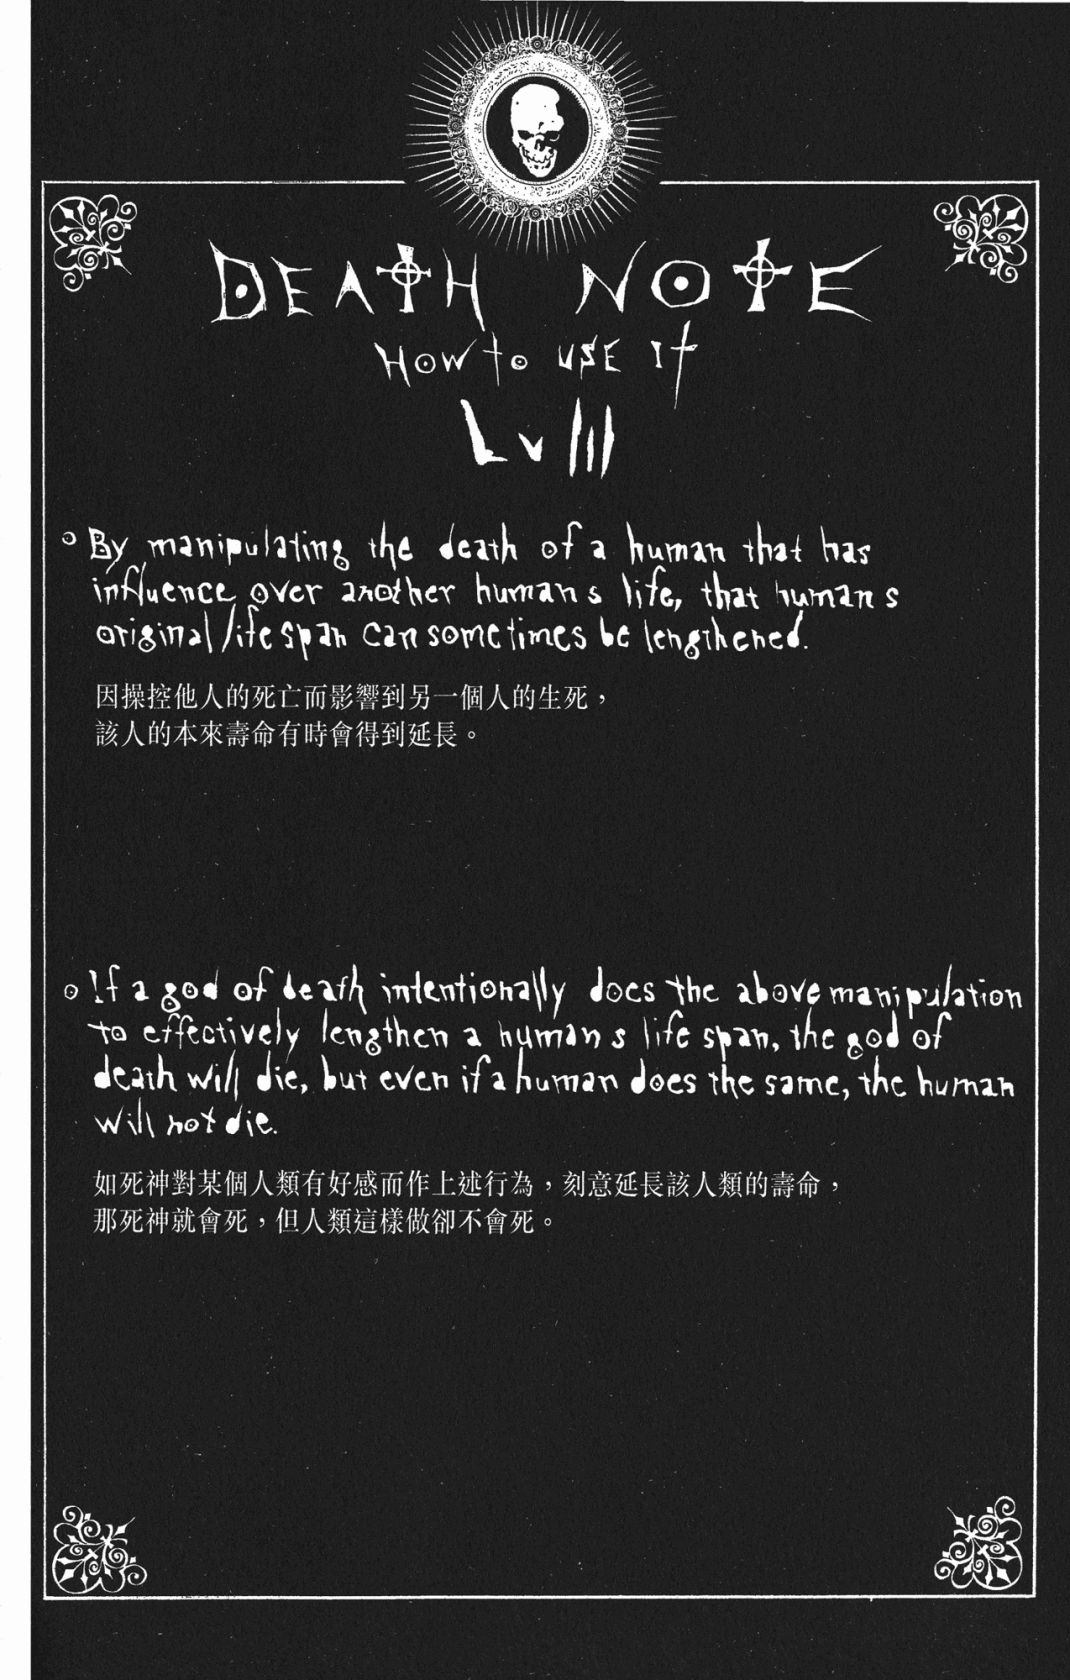 DEATH NOTE
HOW to USE It
LVIII
By manipulating the death of a human that has
influence over another humans life, that humans
original life span can sometimes be lengthened.
因操控他人的死亡而影響到另一個人的生死，
該人的本來壽命有時會得到延長。
If a god of death intentionally does the above manipulation
to effectively lengthen a humans life span, the god of
death will die, but even if a human does the same, the human
will not die.
如死神對某個人類有好感而作上述行為，刻意延長該人類的壽命，
那死神就會死，但人類這樣做卻不會死。